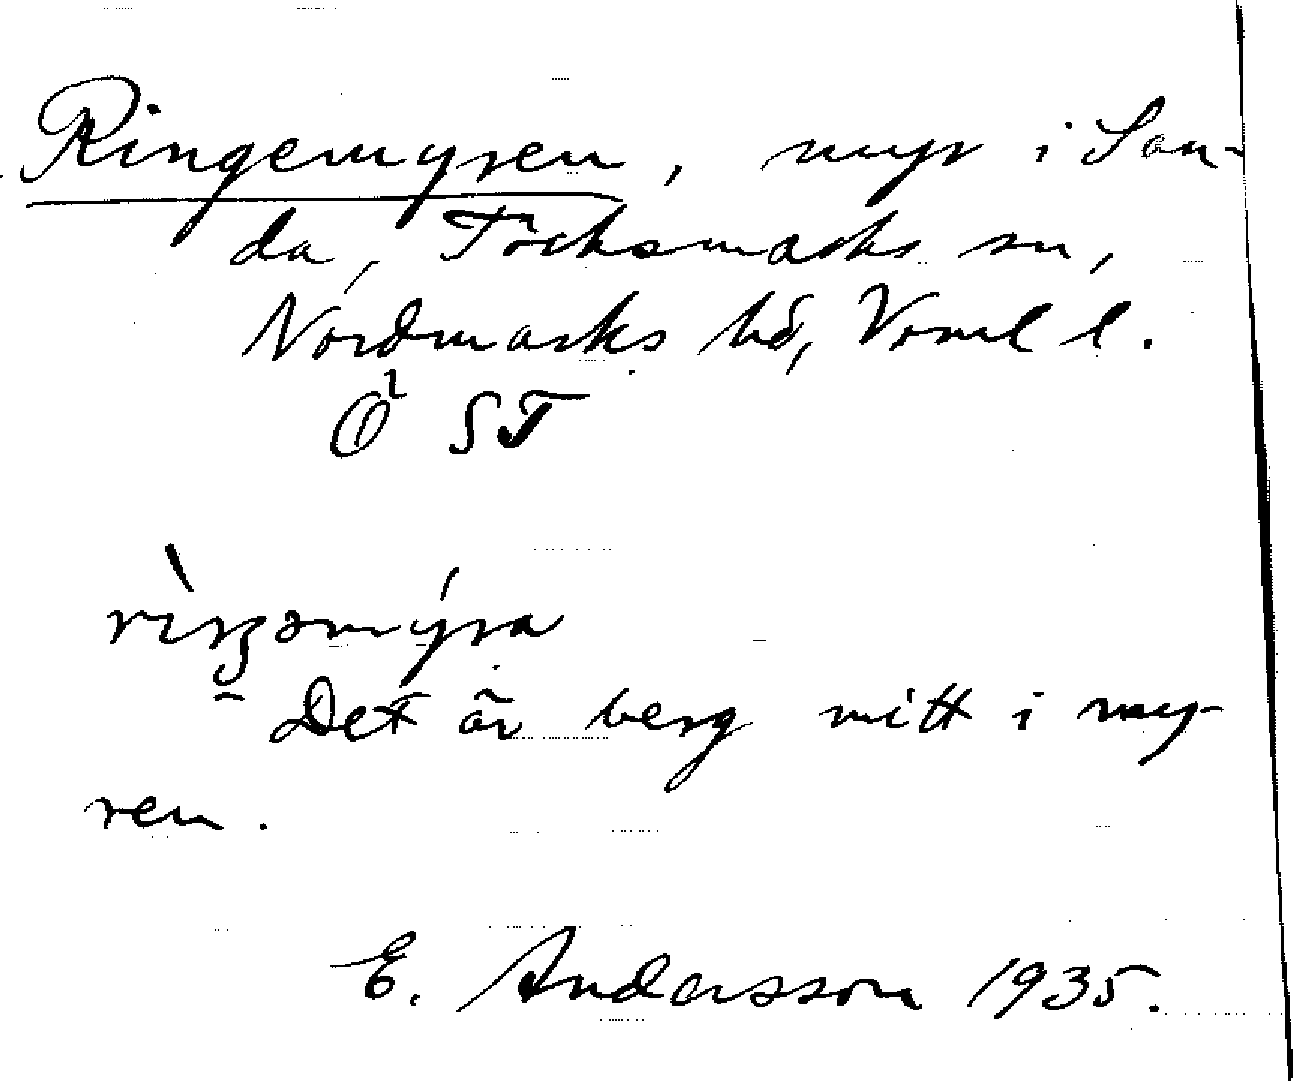 Ringemyren, myr i San-
da, Töcksmarks sn,
Nordmarks hd, Värml l.
Ö ST
Det är berg mitt i my-
ren.
E. Andersson 1935.